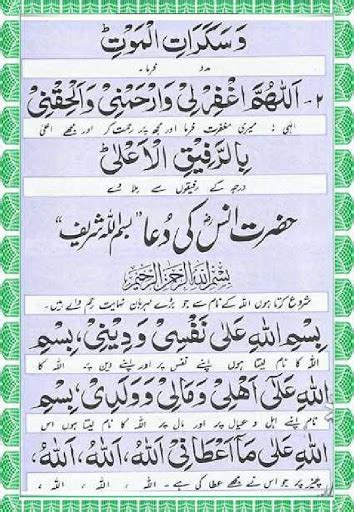 وَسَكَرَاتِ الْمَوْتِ
مدد فرما۔
۲۔ اَللّٰهُمَّ اغْفِرْ لِیْ وَارْحَمْنِیْ وَاَلْحِقْنِیْ
الٰہی : میری مغفرت فرما اور مجھ پر رحمت کر اور مجھے اعلیٰ
بِالرَّفِیْقِ الْاَعْلٰی
درجہ کے رفیقوں سے ملا دے
حضرت انسؓ کی دُعا ”بسم اللہ شریف“
بِسْمِ اللهِ الرَّحْمٰنِ الرَّحِيْمِ
شروع کرتا ہوں اللہ کے نام سے جو بڑے مہربان نہایت رحم والے ہیں۔
بِسْمِ اللهِ عَلٰی نَفْسِیْ وَدِیْنِیْ، بِسْمِ
اللہ کا نام لیتا ہوں اپنے نفس پر اور اپنے دین پر اللہ کا
اللهِ عَلٰٓی اَهْلِیْ وَمَالِیْ وَوَلَدِیْ، بِسْمِ
نام اپنے اہل و عیال پر اور مال پر اللہ کا نام لیتا ہوں اس
اللهِ عَلٰی مَآ اَعْطَانِیْ اَللهُ، اَللهُ، اَللهُ،
چیز پر جو اس نے مجھے عطا کی ہے۔ اللہ ، اللہ ، اللہ ،